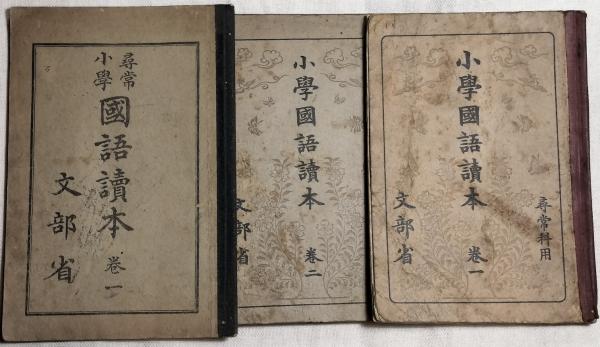 尋常
小學
國語讀本
卷一
文部省
小學國語讀本
卷二
文部省
尋常科用
小學國語讀本
卷一
文部省